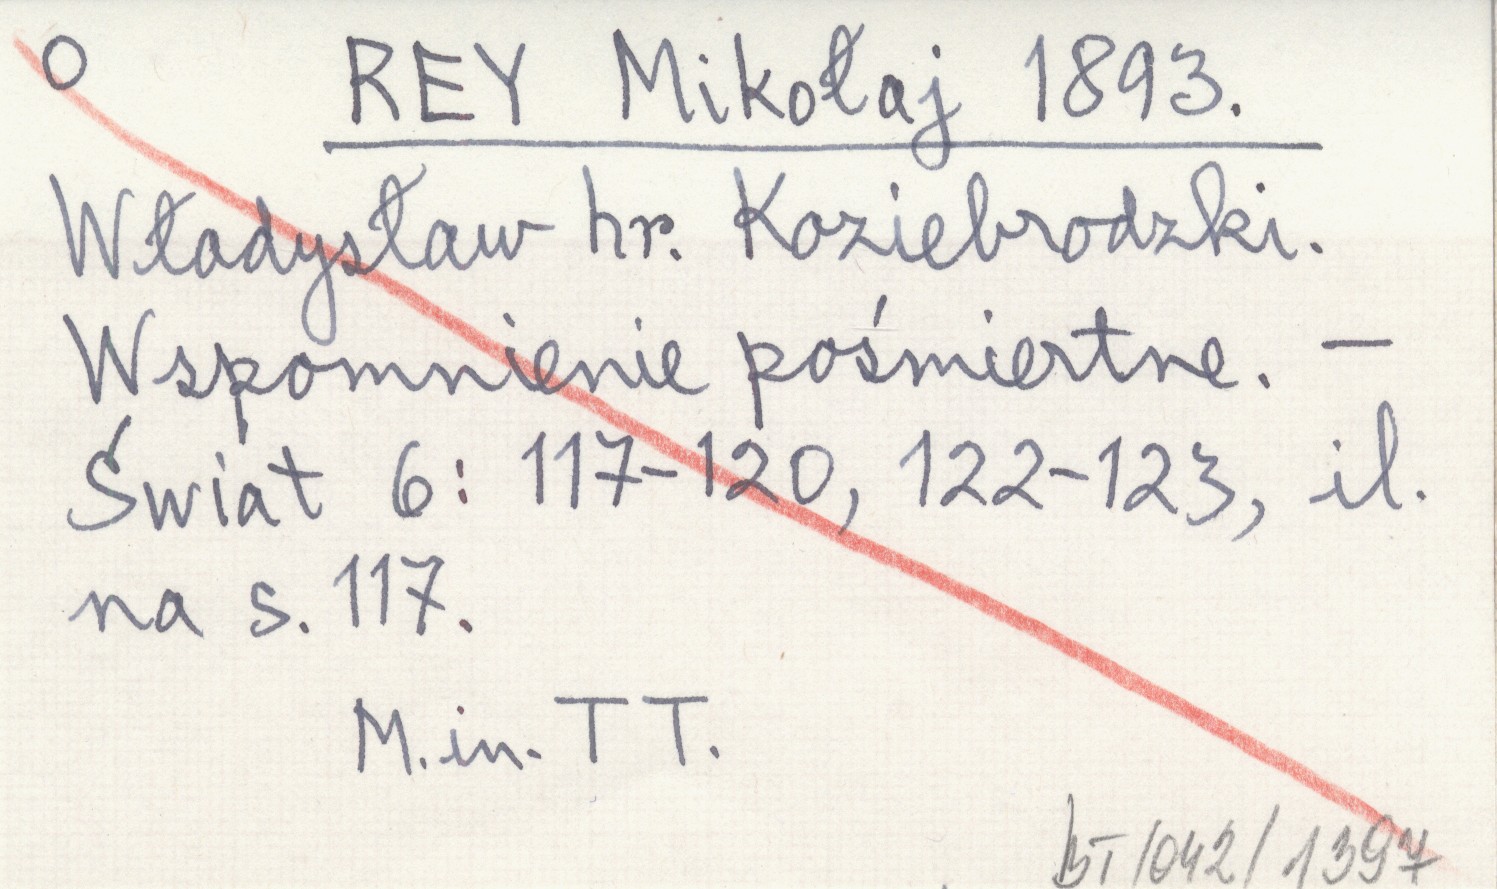 O REY Mikołaj 1893.
Władysław hr. Koziebrodzki.
Wspomnienie pośmiertne. —
Świat 6: 117-120, 122-123, il.
na s. 117.
M.in. TT.
BT/042/1397